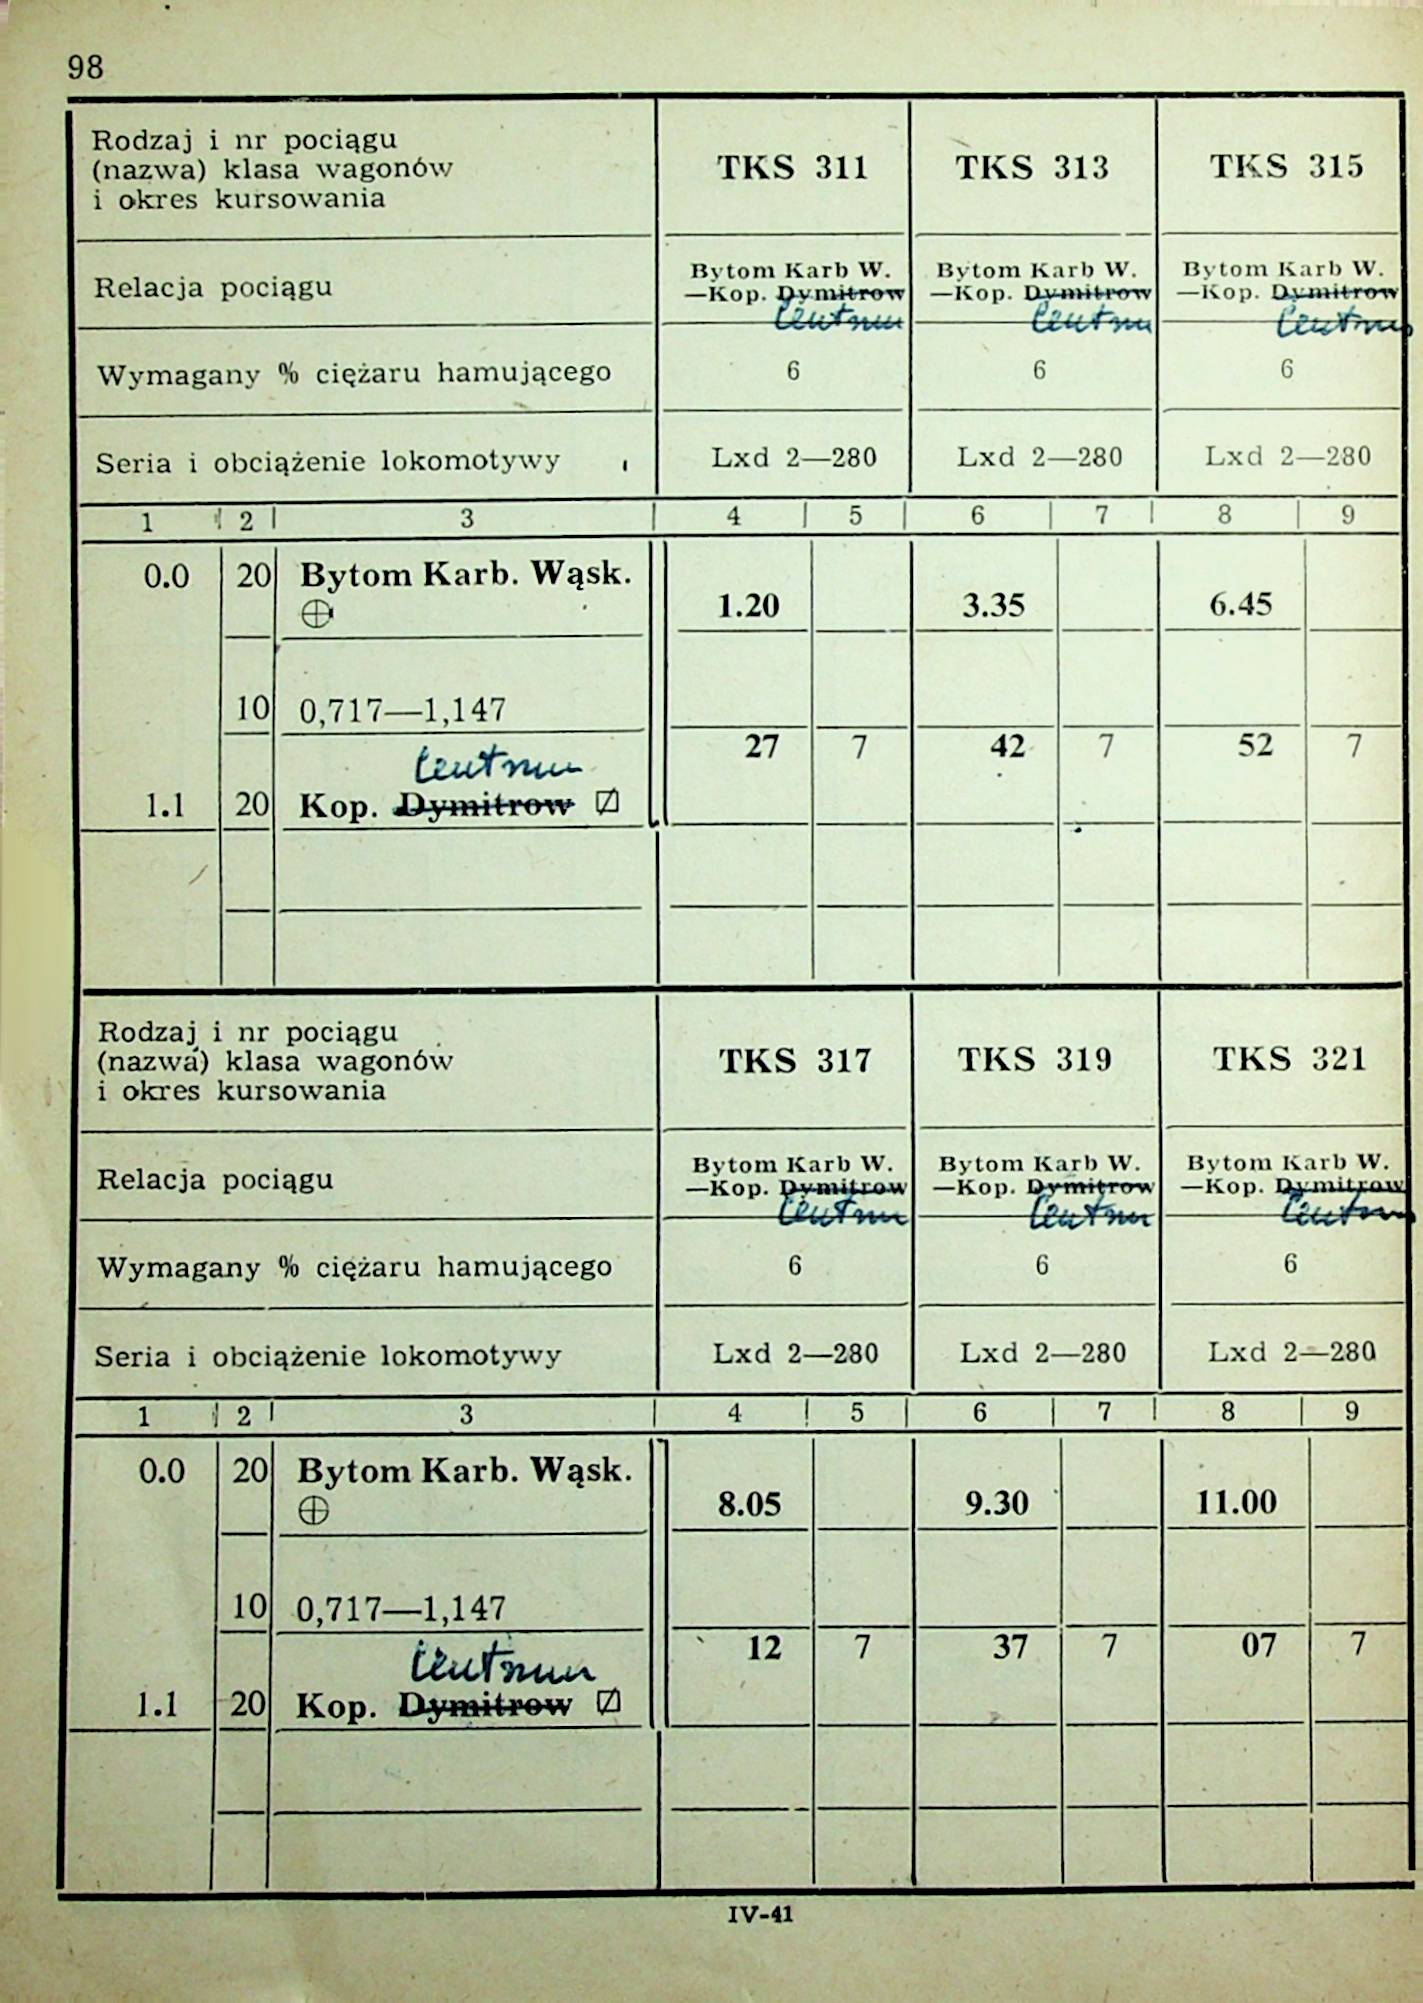 98
Rodzaj i nr pociągu
(nazwa) klasa wagonów
i okres kursowania
TKS 311
TKS 313
TKS 315
Relacja pociągu
Bytom Karb W.
—Kop. Dymitrow
Centrum
Bytom Karb W.
—Kop. Dymitrow
Centrum
Bytom Karb W.
—Kop. Dymitrow
Centrum
Wymagany % ciężaru hamującego
6
6
6
Seria i obciążenie lokomotywy
Lxd 2—280
Lxd 2—280
Lxd 2—280
1 2 3 4 5 6 7 8 9
0.0 20 Bytom Karb. Wąsk.
1.20 3.35 6.45
10 0,717—1,147
27 7 42 7 52 7
Centrum
1.1 20 Kop. Dymitrow
Rodzaj i nr pociągu
(nazwa) klasa wagonów
i okres kursowania
TKS 317
TKS 319
TKS 321
Relacja pociągu
Bytom Karb W.
—Kop. Dymitrow
Centrum
Bytom Karb W.
—Kop. Dymitrow
Centrum
Bytom Karb W.
—Kop. Dymitrow
Centrum
Wymagany % ciężaru hamującego
6
6
6
Seria i obciążenie lokomotywy
Lxd 2—280
Lxd 2—280
Lxd 2—280
1 2 3 4 5 6 7 8 9
0.0 20 Bytom Karb. Wąsk.
8.05 9.30 11.00
10 0,717—1,147
12 7 37 7 07 7
Centrum
1.1 20 Kop. Dymitrow
IV-41